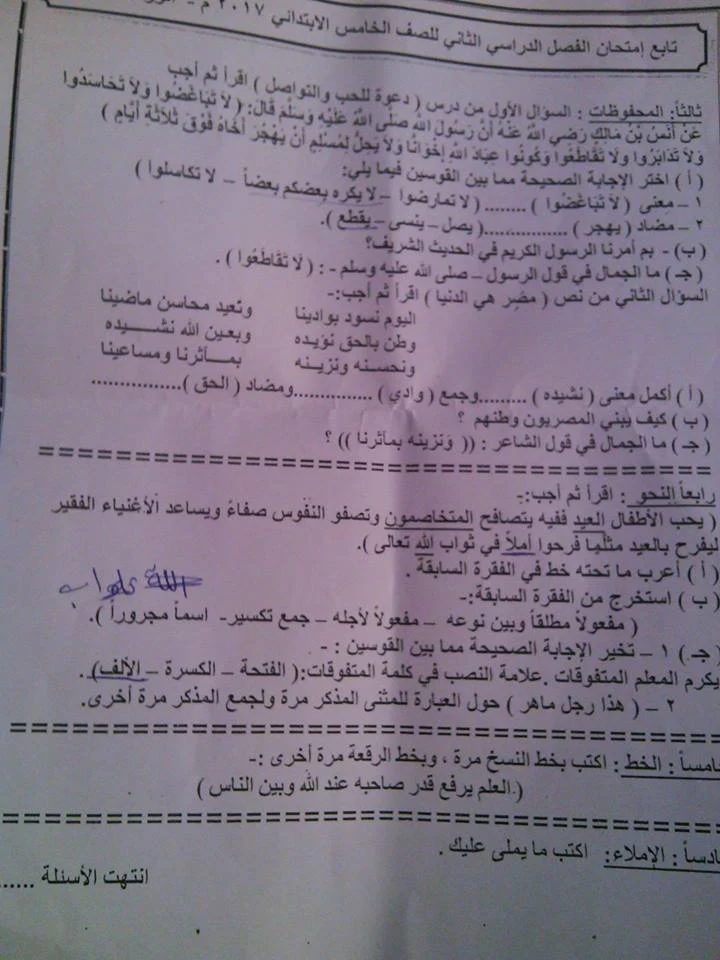 تابع إمتحان الفصل الدراسي الثاني للصف الخامس الابتدائي ٢٠١٧ م -
ثالثاً: المحفوظات : السؤال الأول من درس ( دعوة للحب والتواصل ) اقرأ ثم أجب
عَنْ أَنَسُ بْنُ مَالِكٍ رَضِي اللَّهُ عَنْهُ أَنَّ رَسُولَ اللهِ صَلَّى اللَّهُ عَلَيْهِ وَسَلَّمَ قَالَ: ( لاَ تَبَاغَضُوا وَلاَ تَحَاسَدُوا
وَلاَ تَدَابَرُوا ولا تَقَاطَعُوا وَكُونُوا عِبَادَ اللهِ إِخْوَانًا وَلاَ يَحِلُّ لِمُسْلِمٍ أَنْ يَهْجُرَ أَخَاهُ فَوْقَ ثَلاَثَةِ أَيَّامٍ )
( أ ) اختر الإجابة الصحيحة مما بين القوسين فيما يلي:
١ – معنى ( لاَ تَبَاغَضُوا ) ........ ( لا تمارضوا – لا يكره بعضكم بعضاً – لا تكاسلوا )
٢ – مضاد ( يهجر ) ................( يصل – ينسى – يقطع ).
(ب) - بم أمرنا الرسول الكريم في الحديث الشريف؟
( جـ ) ما الجمال في قول الرسول – صلى الله عليه وسلم - : ( لاَ تَقَاطَعُوا ) .
السؤال الثاني من نص ( مصر هي الدنيا ) اقرأ ثم أجب:-
اليوم نسود بوادينا ونعيد محاسن ماضينا
وطن بالحق نؤيده وبعين الله نشـــيده
ونحسنه ونزينه بمـآثرنا ومساعينا
( أ ) أكمل معنى ( نشيده ) .........وجمع ( وادي ) ...............ومضاد ( الحق )................
( ب ) كيف يبني المصريون وطنهم ؟
( جـ ) ما الجمال في قول الشاعر : (( وَنزينه بمآثرنا )) ؟
رابعاً النحو : اقرأ ثم أجب:-
( يحب الأطفال العيد ففيه يتصافح المتخاصمون وتصفو النفوس صفاءً ويساعد الأغنياء الفقير
ليفرح بالعيد مثلها فرحوا أملاً في ثواب الله تعالى ).
( أ ) أعرب ما تحته خط في الفقرة السابقة .
( ب ) استخرج من الفقرة السابقة:-
( مفعولاً مطلقاً وبين نوعه – مفعولاً لأجله – جمع تكسير- اسماً مجروراً ).
( جـ ) ١ – تخير الإجابة الصحيحة مما بين القوسين : -
يكرم المعلم المتفوقات .علامة النصب في كلمة المتفوقات:( الفتحة – الكسرة – الألف) .
٢ – ( هذا رجل ماهر ) حول العبارة للمثنى المذكر مرة ولجمع المذكر مرة أخرى.
خامساً : الخط : اكتب بخط النسخ مرة ، وبخط الرقعة مرة أخرى :-
( العلم يرفع قدر صاحبه عند الله وبين الناس )
سادساً : الإملاء: اكتب ما يملى عليك .
انتهت الأسئلة ......